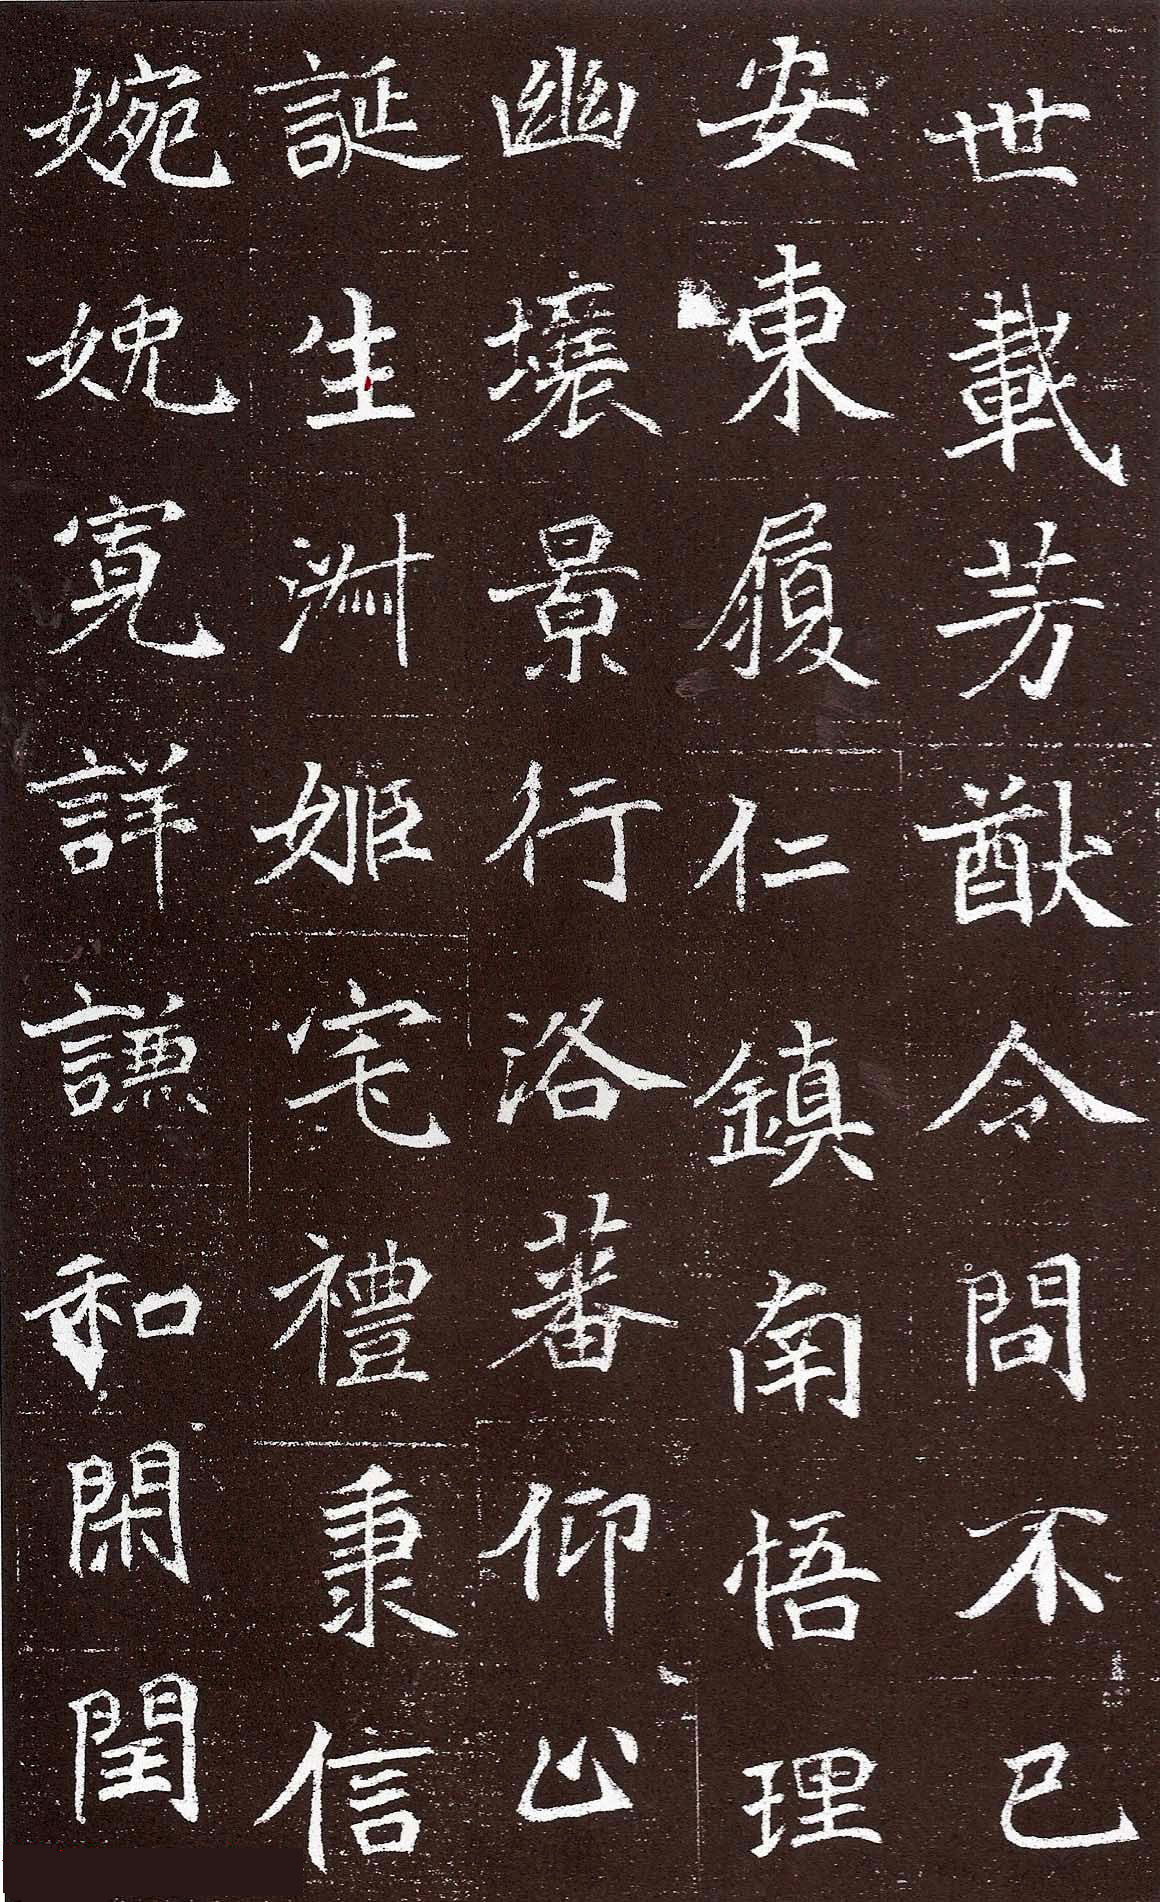 世載芳猷令問不已
安東履仁鎮南悟理
幽壤景行洛蕃仰止
誕生淑姬宅禮秉信
婉娩寬詳謙和閑閏